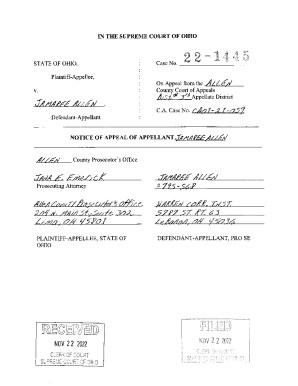 IN THE SUPREME COURT OF OHIO
STATE OF OHIO, : Case No. 22-1445
Plaintiff-Appellee, :
: On Appeal from the ALLEN
v. : County Court of Appeals
: Dist 3rd Appellate District
JAMAREE ALLEN :
: C.A. Case No.
Defendant-Appellant. :
NOTICE OF APPEAL OF APPELLANT JAMAREE ALLEN
ALLEN County Prosecutor's Office
Prosecuting Attorney
JAMAREE ALLEN
#795-568
Allen County Prosecutor's Office
204 N. Main St, Suite 302
Lima, OH 45801
WARREN CORR. INST.
5787 ST. RT. 63
Lebanon, OH 45036
PLAINTIFF-APPELLEE, STATE OF
OHIO
DEFENDANT-APPELLANT, PRO SE
RECEIVED
NOV 22 2022
CLERK OF COURT
SUPREME COURT OF OHIO
FILED
NOV 22 2022
CLERK OF COURT
SUPREME COURT OF OHIO